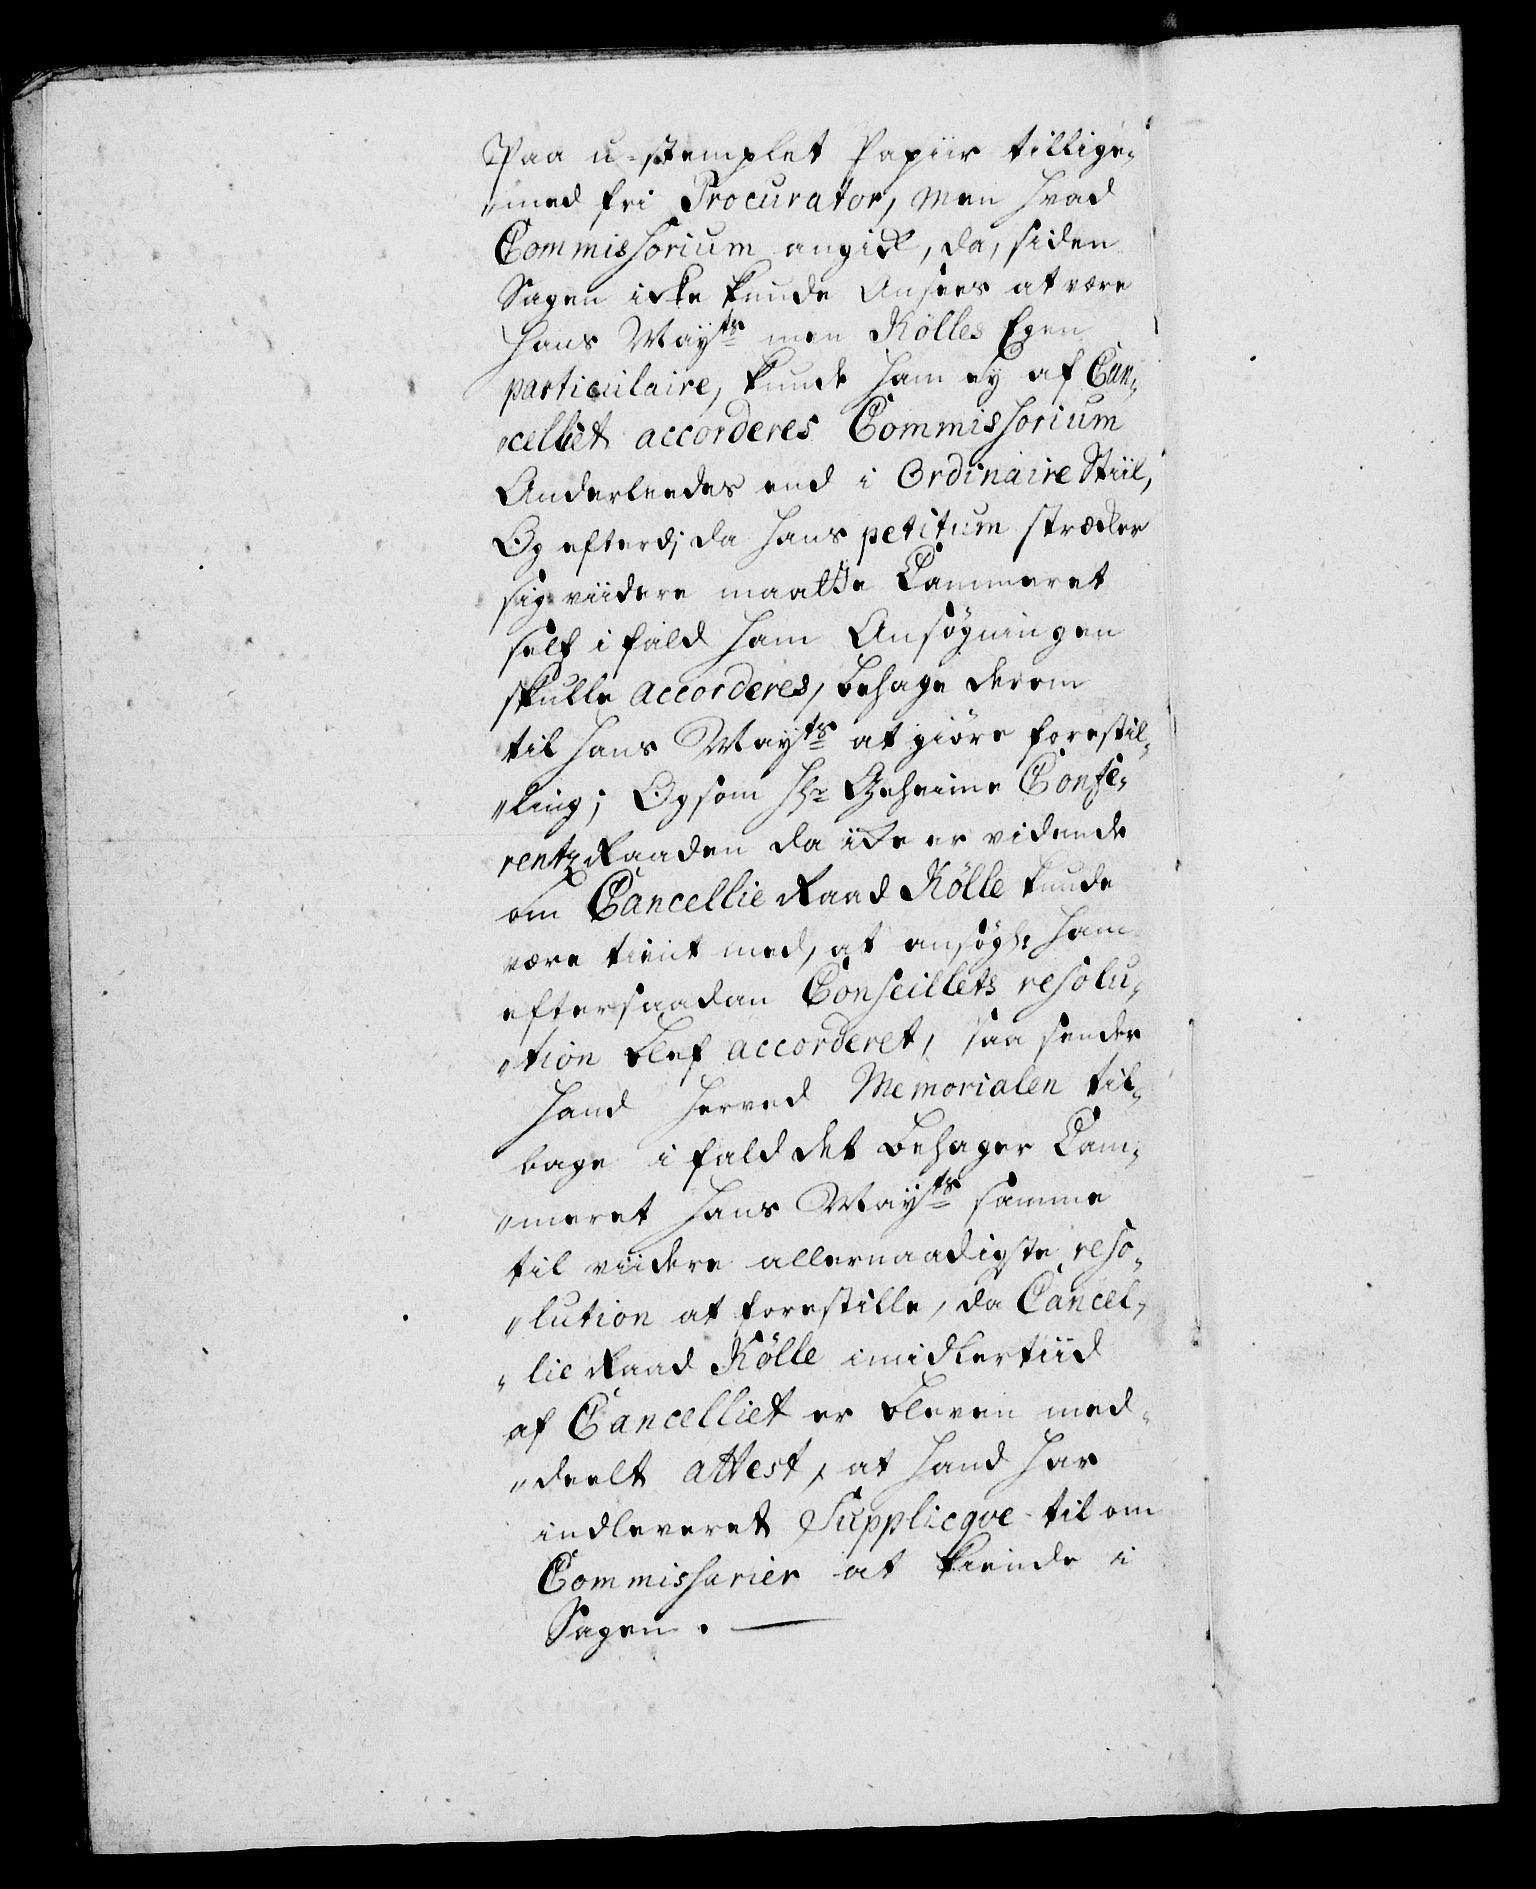 Paa u-stemplet Papiir tillige„
„med fri Procurator, men hvad
Commissorium angick, da, siden
Sagen icke kunde Ansees at være
Hans Mayts men Kölles Egen
particulaire, kunde ham ey af Can„
„celliet accorderes Commissorium
Anderleedes end i Ordinaire Stiil,
Og efterdj da hans petitum strecker
sig viidere maatte Cammeret
self ifald ham Ansøgningen
skulle accorderes, behage derom
til Hans Mayts at giöre forestil„
„ling; Og som Hr Geheime Confe„
rentz Raaden da icke er vidende
om Cancellie Raad Kölle kunde
være tient med, at ansøgh: ham
efter saadan Conseillets resolu„
„tion blef accorderet, saa sender
Hand herved Memorialen til„
bage i fald det behager Cam„
„meret Hans Mayts samme
til viidere allernaadigste reso„
„lution at forestille, da Cancel„
„lie Raad Kölle imidlertiid
af Cancelliet er bleven med„
„deelt attest, at hand har
indleveret Supplicqve til om
Commissarier at kiende i
Sagen. —